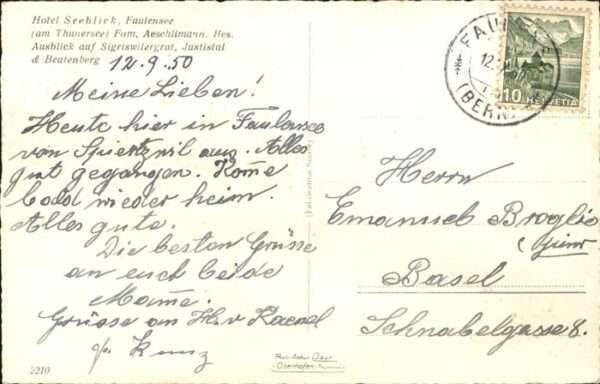 Hotel Seeblick, Faulensee
(am Thunersee) Fam. Aeschlimann, Bes.
Ausblick auf Sigriswilergrat, Justistal
& Beatenberg
12.9.50
Meine Lieben!
Heute hier in Faulensee
von Spiezwil aus. Alles
gut gegangen. Komme
bald wieder heim.
Alles gute.
Die besten Grüsse
an euch beide
Mame.
Grüsse an H. v Kaenel
Kunz
2210
FAULENSEE
12.
(BERN)
10 HELVETIA
Herrn
Emanuel Broglio
Basel
Schnabelgasse 8.